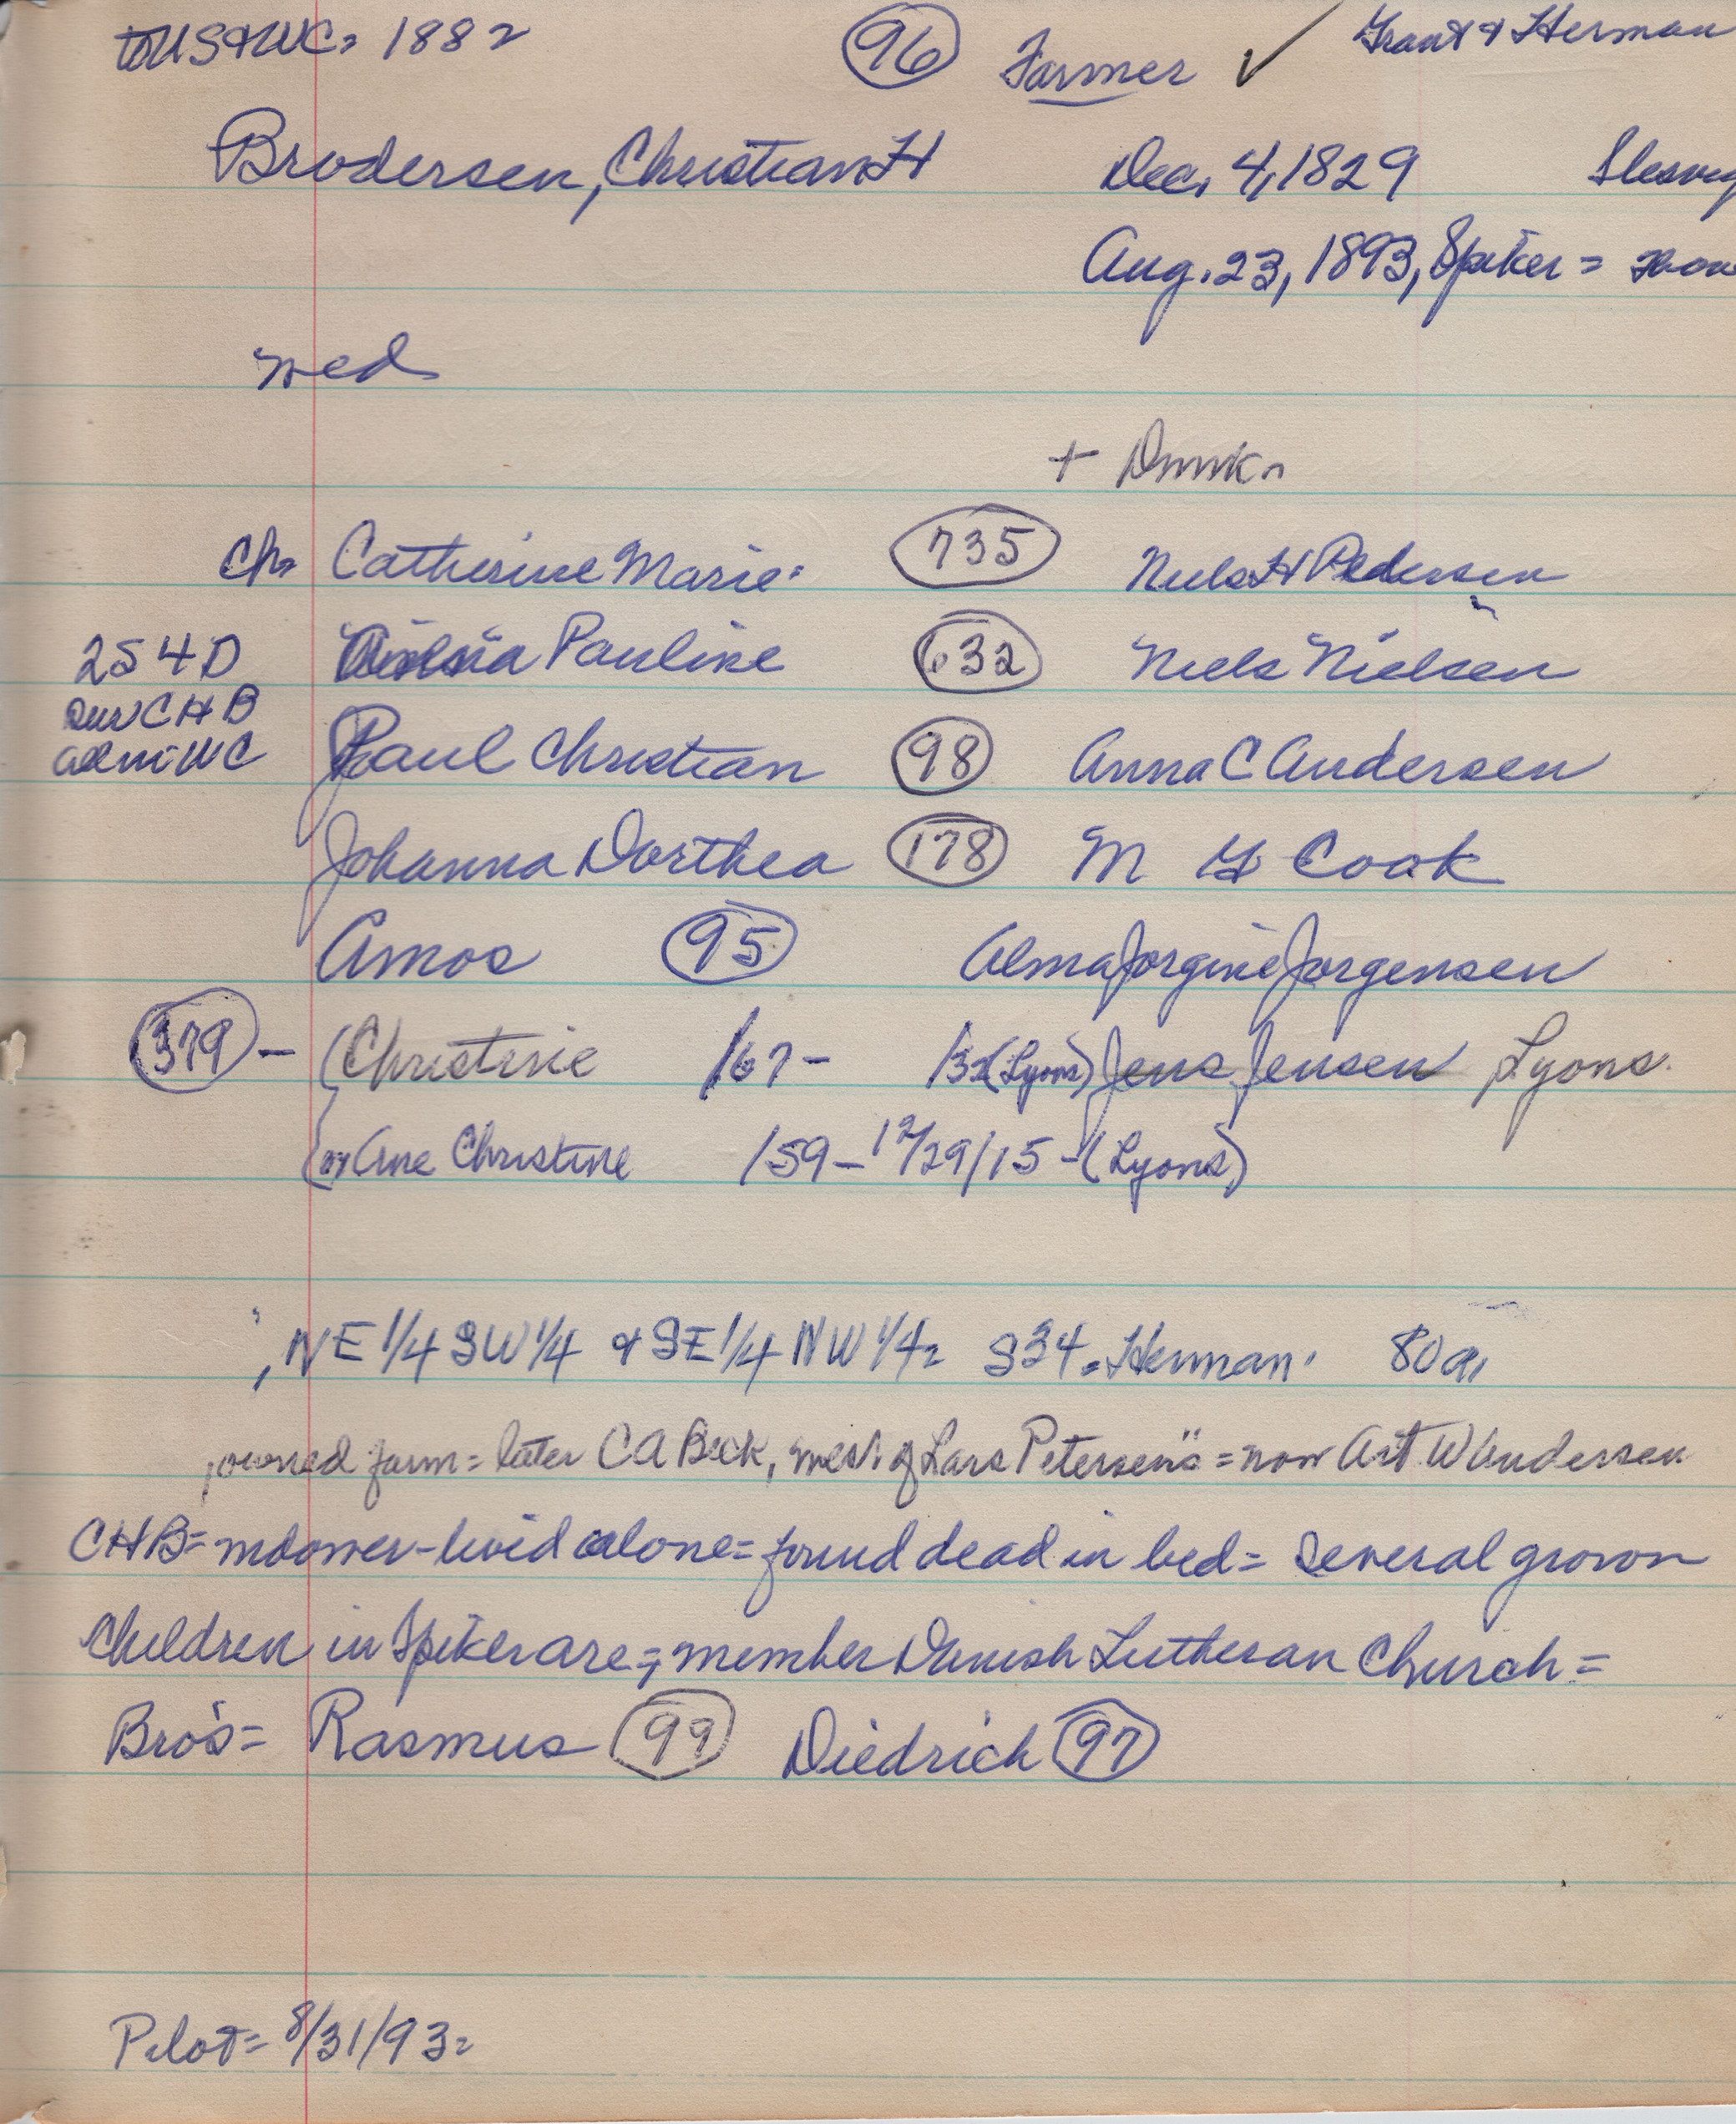 to US & WC = 1882 (96) Farmer ✓ Grant & Herman
Brodersen, Christian H Dec. 4, 1829 Slesvig
Aug. 23, 1893, Spiker =
wed
+ Dmmk =
Ch = Catherine Marie (735) Niels H Pedersen
254 D Pauline (632) Niels Nielsen
CHB
adm WC Paul Christian (98) Anna C Andersen
Johanna Dorthea (178) M G Cook
Amos (95) Alma Jorgine Jorgensen
(379) - (Christine /67 - /32 (Lyons) Jens Jensen Lyons.
(or Ane Christine /59 - 12/29/15 - (Lyons)
, NE 1/4 SW 1/4 & SE 1/4 NW 1/4 = S34 = Herman. 80 a,
, owned farm = later C A Beck, west of Lars Petersen's = now Art W Andersen
CHB = widower - lived alone = found dead in bed = several grown
children in Spiker are =, member Danish Lutheran Church =
Bro's = Rasmus (99) Diedrich (97)
Pilot = 8/31/93 =